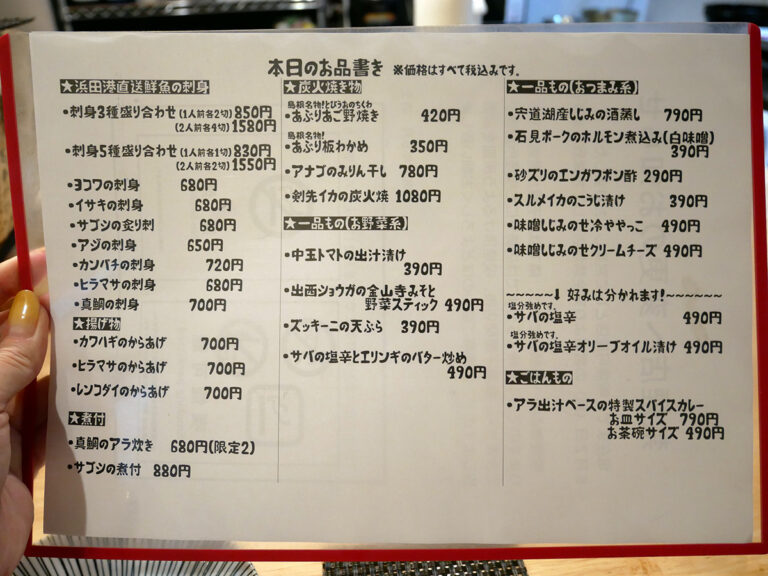 本日のお品書き ※価格はすべて税込みです。
★浜田港直送鮮魚の刺身
・刺身3種盛り合わせ(1人前各2切)850円
(2人前各4切)1580円
・刺身5種盛り合わせ(1人前各1切)830円
(2人前各2切)1550円
・ヨコワの刺身 680円
・イサキの刺身 680円
・サゴシの炙り刺 680円
・アジの刺身 650円
・カンパチの刺身 720円
・ヒラマサの刺身 680円
・真鯛の刺身 700円
★揚げ物
・カワハギのからあげ 700円
・ヒラマサのからあげ 700円
・レンコダイのからあげ 700円
★煮付
・真鯛のアラ炊き 680円(限定2)
・サゴシの煮付 880円
★炭火焼き物
島根名物!とびうおのちくわ
・あぶりあご野焼き 420円
島根名物!
・あぶり板わかめ 350円
・アナゴのみりん干し 780円
・剣先イカの炭火焼 1080円
★一品もの(お野菜系)
・中玉トマトの出汁漬け
390円
・出西ショウガの金山寺みそと
野菜スティック 490円
・ズッキーニの天ぷら 390円
・サバの塩辛とエリンギのバター炒め
490円
★一品もの(おつまみ系)
・宍道湖産しじみの酒蒸し 790円
・石見ポークのホルモン煮込み(白味噌)
390円
・砂ズリのエンガワポン酢 290円
・スルメイカのこうじ漬け 390円
・味噌しじみのせ冷ややっこ 490円
・味噌しじみのせクリームチーズ 490円
~~~~~↓ 好みは分かれます!~~~~~~
塩分強めです。
・サバの塩辛 490円
塩分強めです。
・サバの塩辛オリーブオイル漬け 490円
★ごはんもの
・アラ出汁ベースの特製スパイスカレー
お皿サイズ 790円
お茶碗サイズ 490円